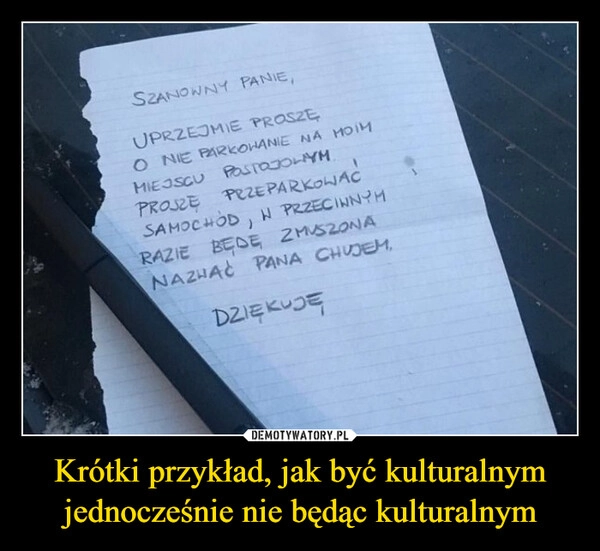 SZANOWNY PANIE,
UPRZEJMIE PROSZĘ
O NIE PARKOWANIE NA MOIM
MIEJSCU POSTOJOWYM.
PROSZĘ PRZEPARKOWAĆ
SAMOCHÓD, W PRZECIWNYM
RAZIE BĘDĘ ZMUSZONA
NAZWAĆ PANA CHUJEM.
DZIĘKUJĘ
DEMOTYWATORY.PL
Krótki przykład, jak być kulturalnym
jednocześnie nie będąc kulturalnym